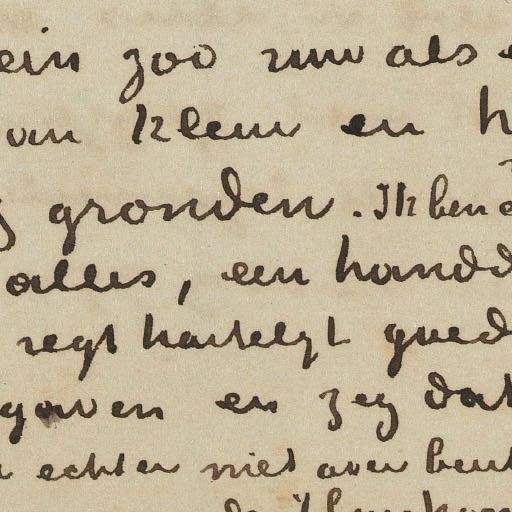 ein zoo ruw als
van kleur en h
gronden. Ik ben
alles, een handd
regt hartelyk goed
gaven en zeg dat
echter niet over bent